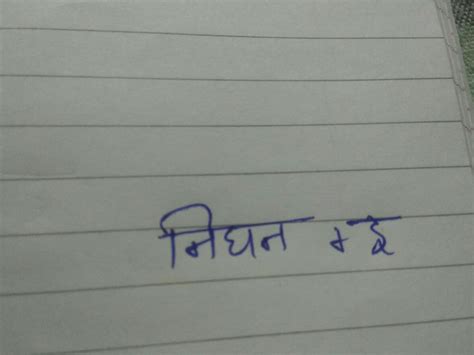 निधन + ई